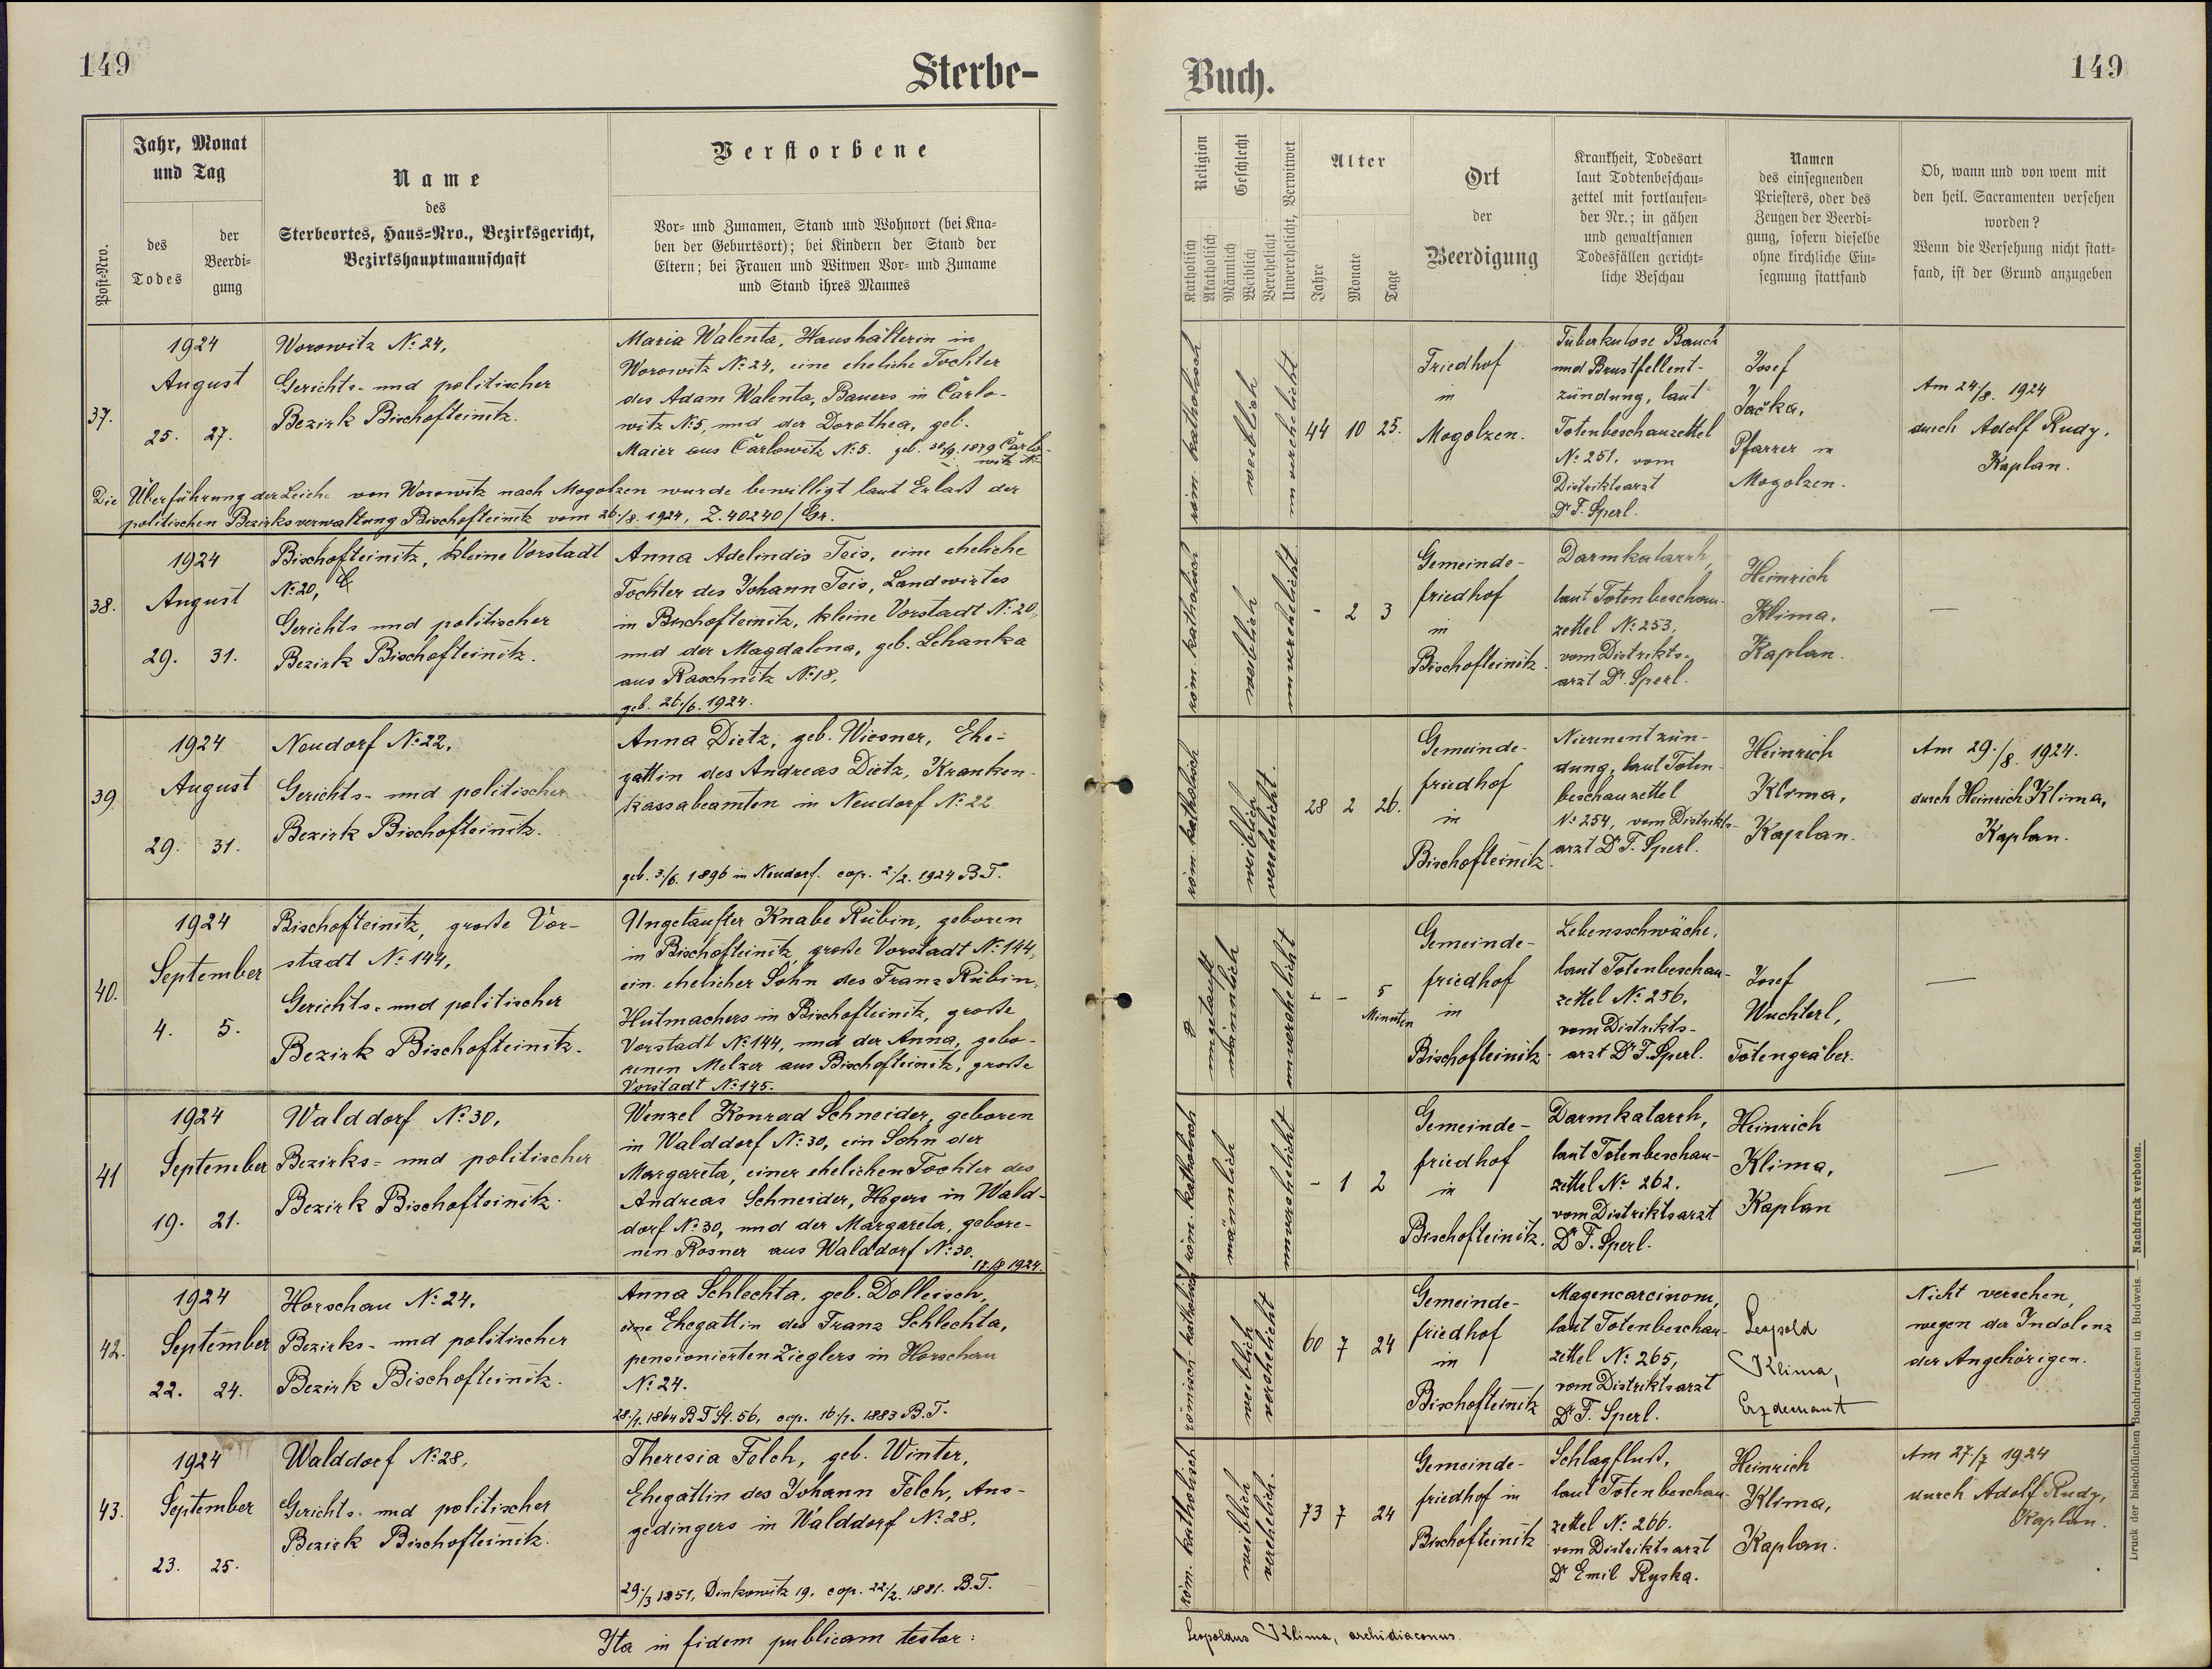 149
Sterbe-
Post-Nro.
Jahr, Monat
und Tag
des
Todes
der
Beerdi-
gung
Name
des
Sterbeortes, Haus-Nro., Bezirksgericht,
Bezirkshauptmannschaft
Verstorbene
Vor- und Zunamen, Stand und Wohnort (bei Kna-
ben der Geburtsort); bei Kindern der Stand der
Eltern; bei Frauen und Witwen Vor- und Zuname
und Stand ihres Mannes
37.
1924
August
25. 27.
Worowitz No 24,
Gerichts- und politischer
Bezirk Bischofteinitz.
Maria Walenta, Haushälterin in
Worowitz No 24, eine eheliche Tochter
des Adam Walenta, Bauers in Čarlo-
witz No 5, und der Dorothea, geb.
Maier aus Čarlowitz No 5. geb. 1879 Čarlo-
witz No
Die Überführung der Leiche von Worowitz nach Mogolzen wurde bewilligt laut Erlaß der
politischen Bezirksverwaltung Bischofteinitz vom 26./8. 1924, Z. 40240/Gr.
38.
1924
August
29. 31.
Bischofteinitz, kleine Vorstadt
No 20,
Gerichts und politischer
Bezirk Bischofteinitz.
Anna Adelindis Teis, eine eheliche
Tochter des Johann Teis, Landwirtes
in Bischofteinitz, kleine Vorstadt No 20,
und der Magdalena, geb. Lehanka
aus Raschnitz No 18,
geb. 26./6. 1924.
39
1924
August
29. 31.
Neudorf No 22,
Gerichts- und politischer
Bezirk Bischofteinitz.
Anna Dietz, geb. Wiesner, Ehe-
gattin des Andreas Dietz, Kranken-
kassabeamten in Neudorf No 22
geb. 3./6. 1896 in Neudorf. cop. 2./2. 1924 B.T.
40.
1924
September
4. 5.
Bischofteinitz, große Vor-
stadt No 144,
Gerichts- und politischer
Bezirk Bischofteinitz.
Ungetaufter Knabe Rübin, geboren
in Bischofteinitz, große Vorstadt No 144,
ein ehelicher Sohn des Franz Rübin,
Hutmachers in Bischofteinitz, große
Vorstadt No 144, und der Anna, gebo-
renen Melzer aus Bischofteinitz, große
Vorstadt No 145.
41
1924
September
19. 21.
Walddorf No 30,
Bezirks- und politischer
Bezirk Bischofteinitz.
Wenzel Konrad Schneider, geboren
in Walddorf No 30, ein Sohn der
Margareta, einer ehelichen Tochter des
Andreas Schneider, Hegers in Wald-
dorf No 30, und der Margareta, gebore-
nen Rosner aus Walddorf No 30.
17./8 1924.
42.
1924
September
22. 24.
Horschau No 24.
Bezirks- und politischer
Bezirk Bischofteinitz.
Anna Schlechta, geb. Dolleisch,
eine Ehegattin des Franz Schlechta,
pensionierten Zieglers in Horschau
No 24.
28./1. 1864 B.T. St. 56, cop. 16./7. 1883 B.T.
43.
1924
September
23. 25.
Walddorf No 28,
Gerichts- und politischer
Bezirk Bischofteinitz.
Theresia Felch, geb. Winter,
Ehegattin des Johann Felch, Aus-
gedingers in Walddorf No 28.
29./3 1851, Dinkowitz 19. cop. 22./2. 1881. B.T.
Ita in fidem publicam testor:
Buch.
149
Religion
Katholisch
Akatholisch
Geschlecht
Männlich
Weiblich
Verehelicht
Unverehelicht, Verwitwet
Alter
Jahre
Monate
Tage
Ort
der
Beerdigung
Krankheit, Todesart
laut Todtenbeschau-
zettel mit fortlaufen-
der Nr.; in gähen
und gewaltsamen
Todesfällen gericht-
liche Beschau
Namen
des einsegnenden
Priesters, oder des
Zeugen der Beerdi-
gung, sofern dieselbe
ohne kirchliche Ein-
segnung stattfand
Ob, wann und von wem mit
den heil. Sacramenten versehen
worden?
Wenn die Versehung nicht statt-
fand, ist der Grund anzugeben
röm. katholisch
weiblich
unverehelicht
44 10 25.
Friedhof
in
Mogolzen.
Tuberkulose Bauch
und Brustfellent-
zündung, laut
Totenbeschauzettel
No 251. vom
Distriktsarzt
Dr F. Sperl.
Josef
Jačka,
Pfarrer in
Mogolzen.
Am 24./8. 1924
durch Adolf Rudy,
Kaplan.
röm. katholisch
weiblich
unverehelicht
- 2 3
Gemeinde-
friedhof
in
Bischofteinitz.
Darmkatarrh,
laut Totenbeschau-
zettel No 253,
vom Distrikts-
arzt Dr. Sperl.
Heinrich
Klima,
Kaplan.
—
röm. katholisch
weiblich
verehelicht.
28 2 26.
Gemeinde-
friedhof
in
Bischofteinitz.
Nierenentzün-
dung, laut Toten-
beschauzettel
No 254, vom Distrikts-
arzt Dr F. Sperl.
Heinrich
Klima,
Kaplan.
Am 29./8. 1924.
durch Heinrich Klima,
Kaplan.
ungetauft
männlich
unverehelicht
- - 5
Minuten
Gemeinde-
friedhof
in
Bischofteinitz.
Lebensschwäche,
laut Totenbeschau-
zettel No 256.
vom Distrikts-
arzt Dr F. Sperl.
Josef
Wuchterl,
Totengräber.
—
röm. katholisch
männlich
unverehelicht
- 1 2
Gemeinde-
friedhof
in
Bischofteinitz.
Darmkatarrh,
laut Totenbeschau-
zettel No 262.
vom Distriktsarzt
Dr F. Sperl.
Heinrich
Klima,
Kaplan
—
römisch katholisch
weiblich
verehelicht
60 7 24
Gemeinde-
friedhof
in
Bischofteinitz
Magencarcinom,
laut Totenbeschau-
zettel No 265,
vom Distriktsarzt
Dr F. Sperl.
Leopold
Klima,
Erzdechant
Nicht versehen,
wegen der Indolenz
der Angehörigen.
röm. katholisch
weiblich
verehelich.
73 7 24
Gemeinde-
friedhof in
Bischofteinitz
Schlagfluß,
laut Totenbeschau-
zettel No 266.
vom Distriktsarzt
Dr Emil Ryska.
Heinrich
Klima,
Kaplan.
Am 27./7 1924
durch Adolf Rudy,
Kaplan.
Leopoldus Klima, archidiaconus.
Druck der bischöflichen Buchdruckerei in Budweis. — Nachdruck verboten.